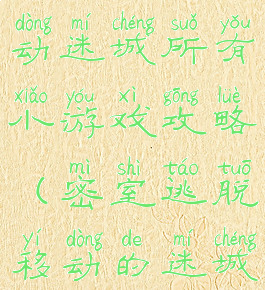 dòng mí chéng suǒ yǒu
动迷城所有
xiǎo yóu xì gōng luè
小游戏攻略
mì shì táo tuō
（密室逃脱
yí dòng de mí chéng
移动的迷城